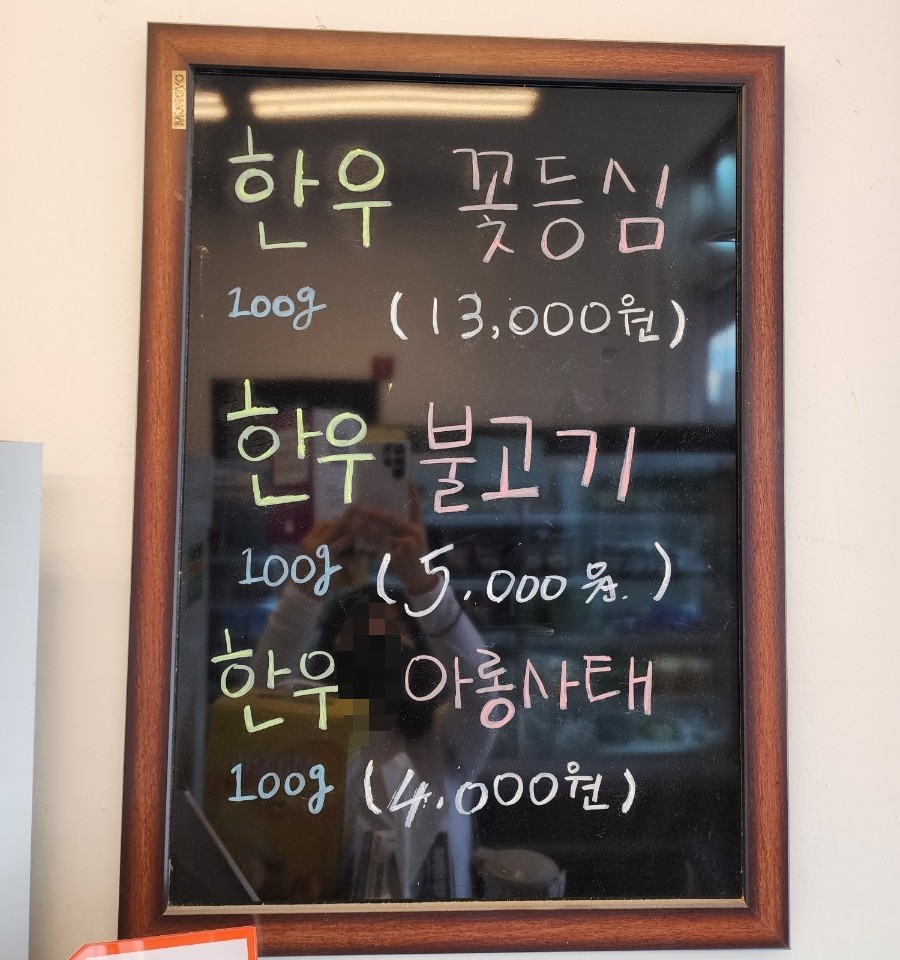 MUNGYO
한우 꽃등심
100g (13,000원)
한우 불고기
100g (5.000원.)
한우 아롱사태
100g (4.000원)